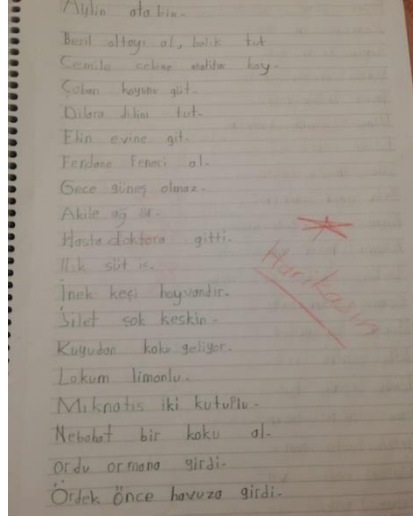 Aylin ata bin.
Beril oltayı al, balık tut
Cemile cebine anahtar koy.
Çoban koyunu güt.
Dilara dilini tut.
Elin evine git.
Ferdane feneri al.
Gece güneş olmaz.
Akile ağ ör.
Hasta doktora gitti.
Ilık süt iç.
İnek keçi hayvandır.
Jilet çok keskin.
Kuyudan koku geliyor.
Lokum limonlu.
Mıknatıs iki kutuplu.
Nebahat bir koku al.
Ordu ormana girdi.
Ördek önce havuza girdi.
Harikasın